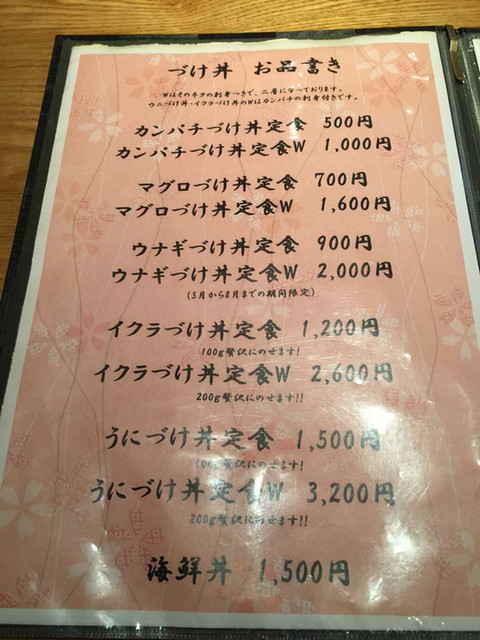 づけ丼 お品書き
Wはそのネタの刺身つきで、二層になっております。
ウニづけ丼・イクラづけ丼のWはカンパチの刺身付きです。
カンパチづけ丼定食 500円
カンパチづけ丼定食W 1,000円
マグロづけ丼定食 700円
マグロづけ丼定食W 1,600円
ウナギづけ丼定食 900円
ウナギづけ丼定食W 2,000円
(5月から8月までの期間限定)
イクラづけ丼定食 1,200円
100g贅沢にのせます!
イクラづけ丼定食W 2,600円
200g贅沢にのせます!!
うにづけ丼定食 1,500円
100g贅沢にのせます!
うにづけ丼定食W 3,200円
200g贅沢にのせます!!
海鮮丼 1,500円